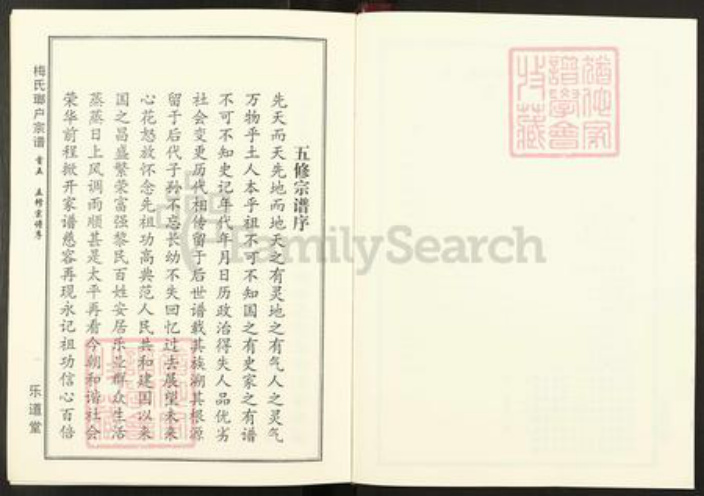 五修宗谱序
先天而天先地而地天之有灵地之有气人之灵气
万物乎土人本乎祖不可不知国之有史家之有谱
不可不知史记年代年月日历政治得失人品优劣
社会变更历代相传留于后世谱载其族溯其根源
留于后代子孙不忘长幼不失回忆过去展望未来
心花怒放怀念先祖功高典范人民共和建国以来
国之昌盛繁荣富强黎民百姓安居乐业群众生活
蒸蒸日上风调雨顺甚是太平再看今朝和谐社会
荣华前程掀开家谱慈容再现永记祖功信心百倍
梅氏瑯户宗谱
卷五 五修宗谱序
乐道堂
FamilySearch